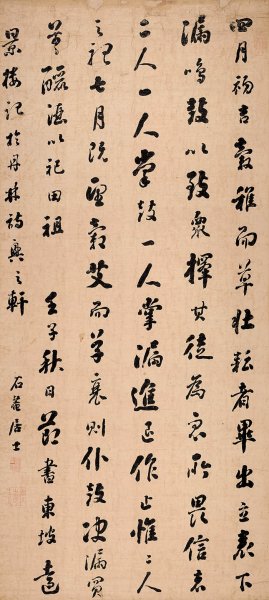 四月初吉穀稚而草壯耘者畢出立表下
漏鳴鼓以致衆擇其徒為衆所畏信者
二人一人掌鼓一人掌漏進退作止惟二人
之視七月既望穀艾而草衰則仆鼓決漏買
羊釃酒以祀田祖 壬子秋日節書東坡遠
景樓記於丹林詩興之軒 石菴居士